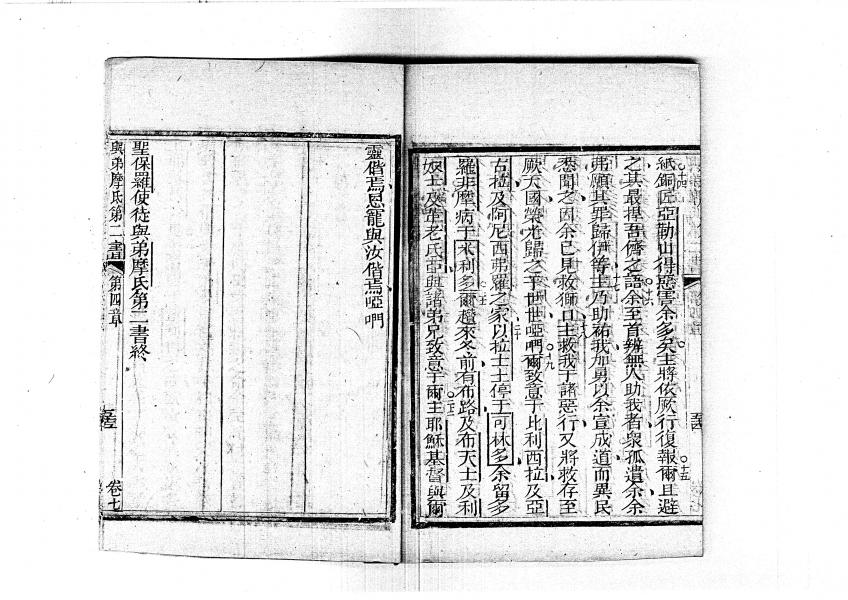 紙銅匠亞勒山得惡害余多矣主將依厥行復報爾○十五且避
之其最捍吾儕之語○十六余至首辨無人助我者衆孤遺余余
弗願其罪歸伊等○十七主乃助祐我加勇以余宣成道而異民
悉聞之因余已見救獅口○十八主救我于諸惡行又將救存至
厥天國榮光歸之于世世啞們○十九爾致意于比利西拉及亞
古拉及阿尼西弗羅之家○二十以拉士士停于可林多余留多
羅非摩病于米利多○爾趨來冬前有布路及布天士及利
奴士及革老氏亞與諸弟兄致意于爾○主耶穌基督與爾
靈偕焉恩寵與汝偕焉啞們
聖保羅使徒與弟摩氐第二書終
與弟摩氐第二書 第四章
卷七